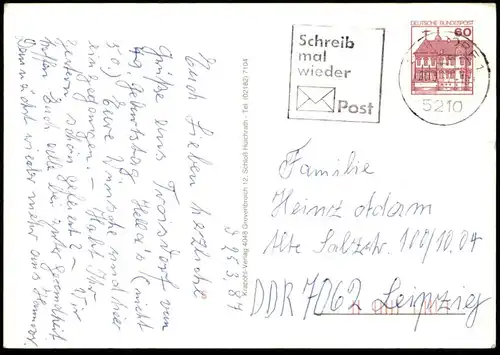 Euch Lieben herzliche
Grüße aus Troisdorf vom
Geburtstag Hella's (nicht
50). Eure Wünsche sind hier
eingegangen. – Habt Ihr
gestern schön gefeiert? – Wir
hoffen Euch alle bei guter Gesundheit
Demnächst wieder mehr aus Hannover.
Krapohl-Verlag 4048 Grevenbroich 12, Schloß Hülchrath - Tel. (02182) 7104
Schreib
mal
wieder
Post
DEUTSCHE BUNDESPOST
60
5210
Familie
Heinz Adam
Alte Salzstr. 100/10.04
DDR 7062 Leipzig